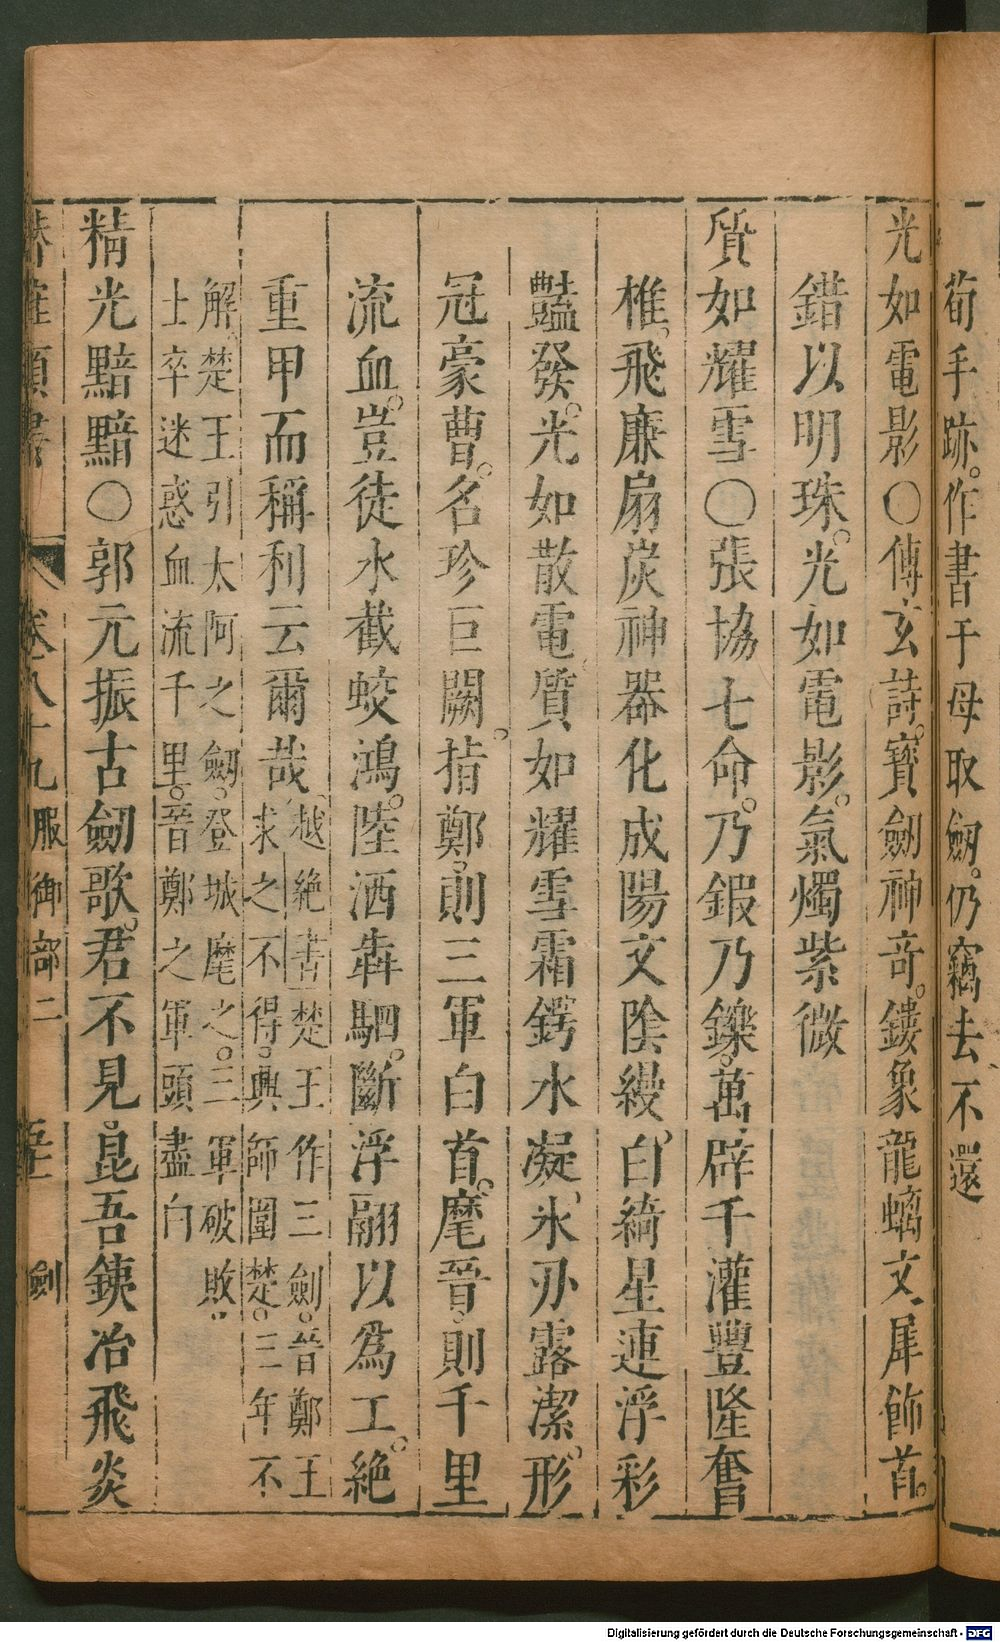 荀手跡。作書于母取劒。仍竊去不還
光如電影〇傅玄詩。寳劒神奇。鏤象龍螭文犀飾首。
錯以明珠。光如電影。氣燭紫微
質如耀雪〇張協七命。乃鍜乃鑠。萬辟千灌豐隆奮
椎。飛廉扇炭神器化成陽文陰縵。白綺星連浮彩
豔發。光如散電質如耀雪霜鍔水凝、氷刅露潔。形
冠豪曹。名珍巨闕。指鄭則三軍白首。麾晉。則千里
流血。豈徒水截蛟鴻。陸洒犇駟。斷浮翮以為工。絶
重甲而稱利云爾哉
越絶書楚王作三劍。晉鄭王
求之不得。興師圍楚。三年不
解。楚王引太阿之劒。登城麾之。三軍破敗
士卒迷惑血流千里。晉鄭之軍頭盡白
精光黯黯〇郭元振古劒歌。君不見昆吾鐵冶飛炎
卷一百八十九服御部二 劍
Digitalisierung gefördert durch die Deutsche Forschungsgemeinschaft - DFG